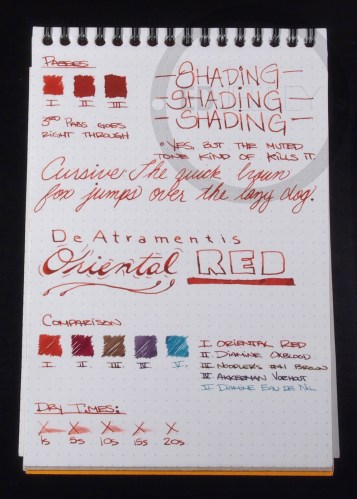 Passes
I II III
3rd Pass goes
right through
-Shading-
-Shading-
-Shading-
*Yes, but the muted
tone kind of kills it.
Cursive The quick brown
fox jumps over the lazy dog.
De Atramentis
Oriental RED
Comparison
I II III IV V.
I Oriental Red
II Diamine Oxblood
III Noodler's #41 Brown
IV Akkerman Voorhout
V Diamine Eau de Nil
Dry Times:
X X X X X
1s 5s 10s 15s 20s